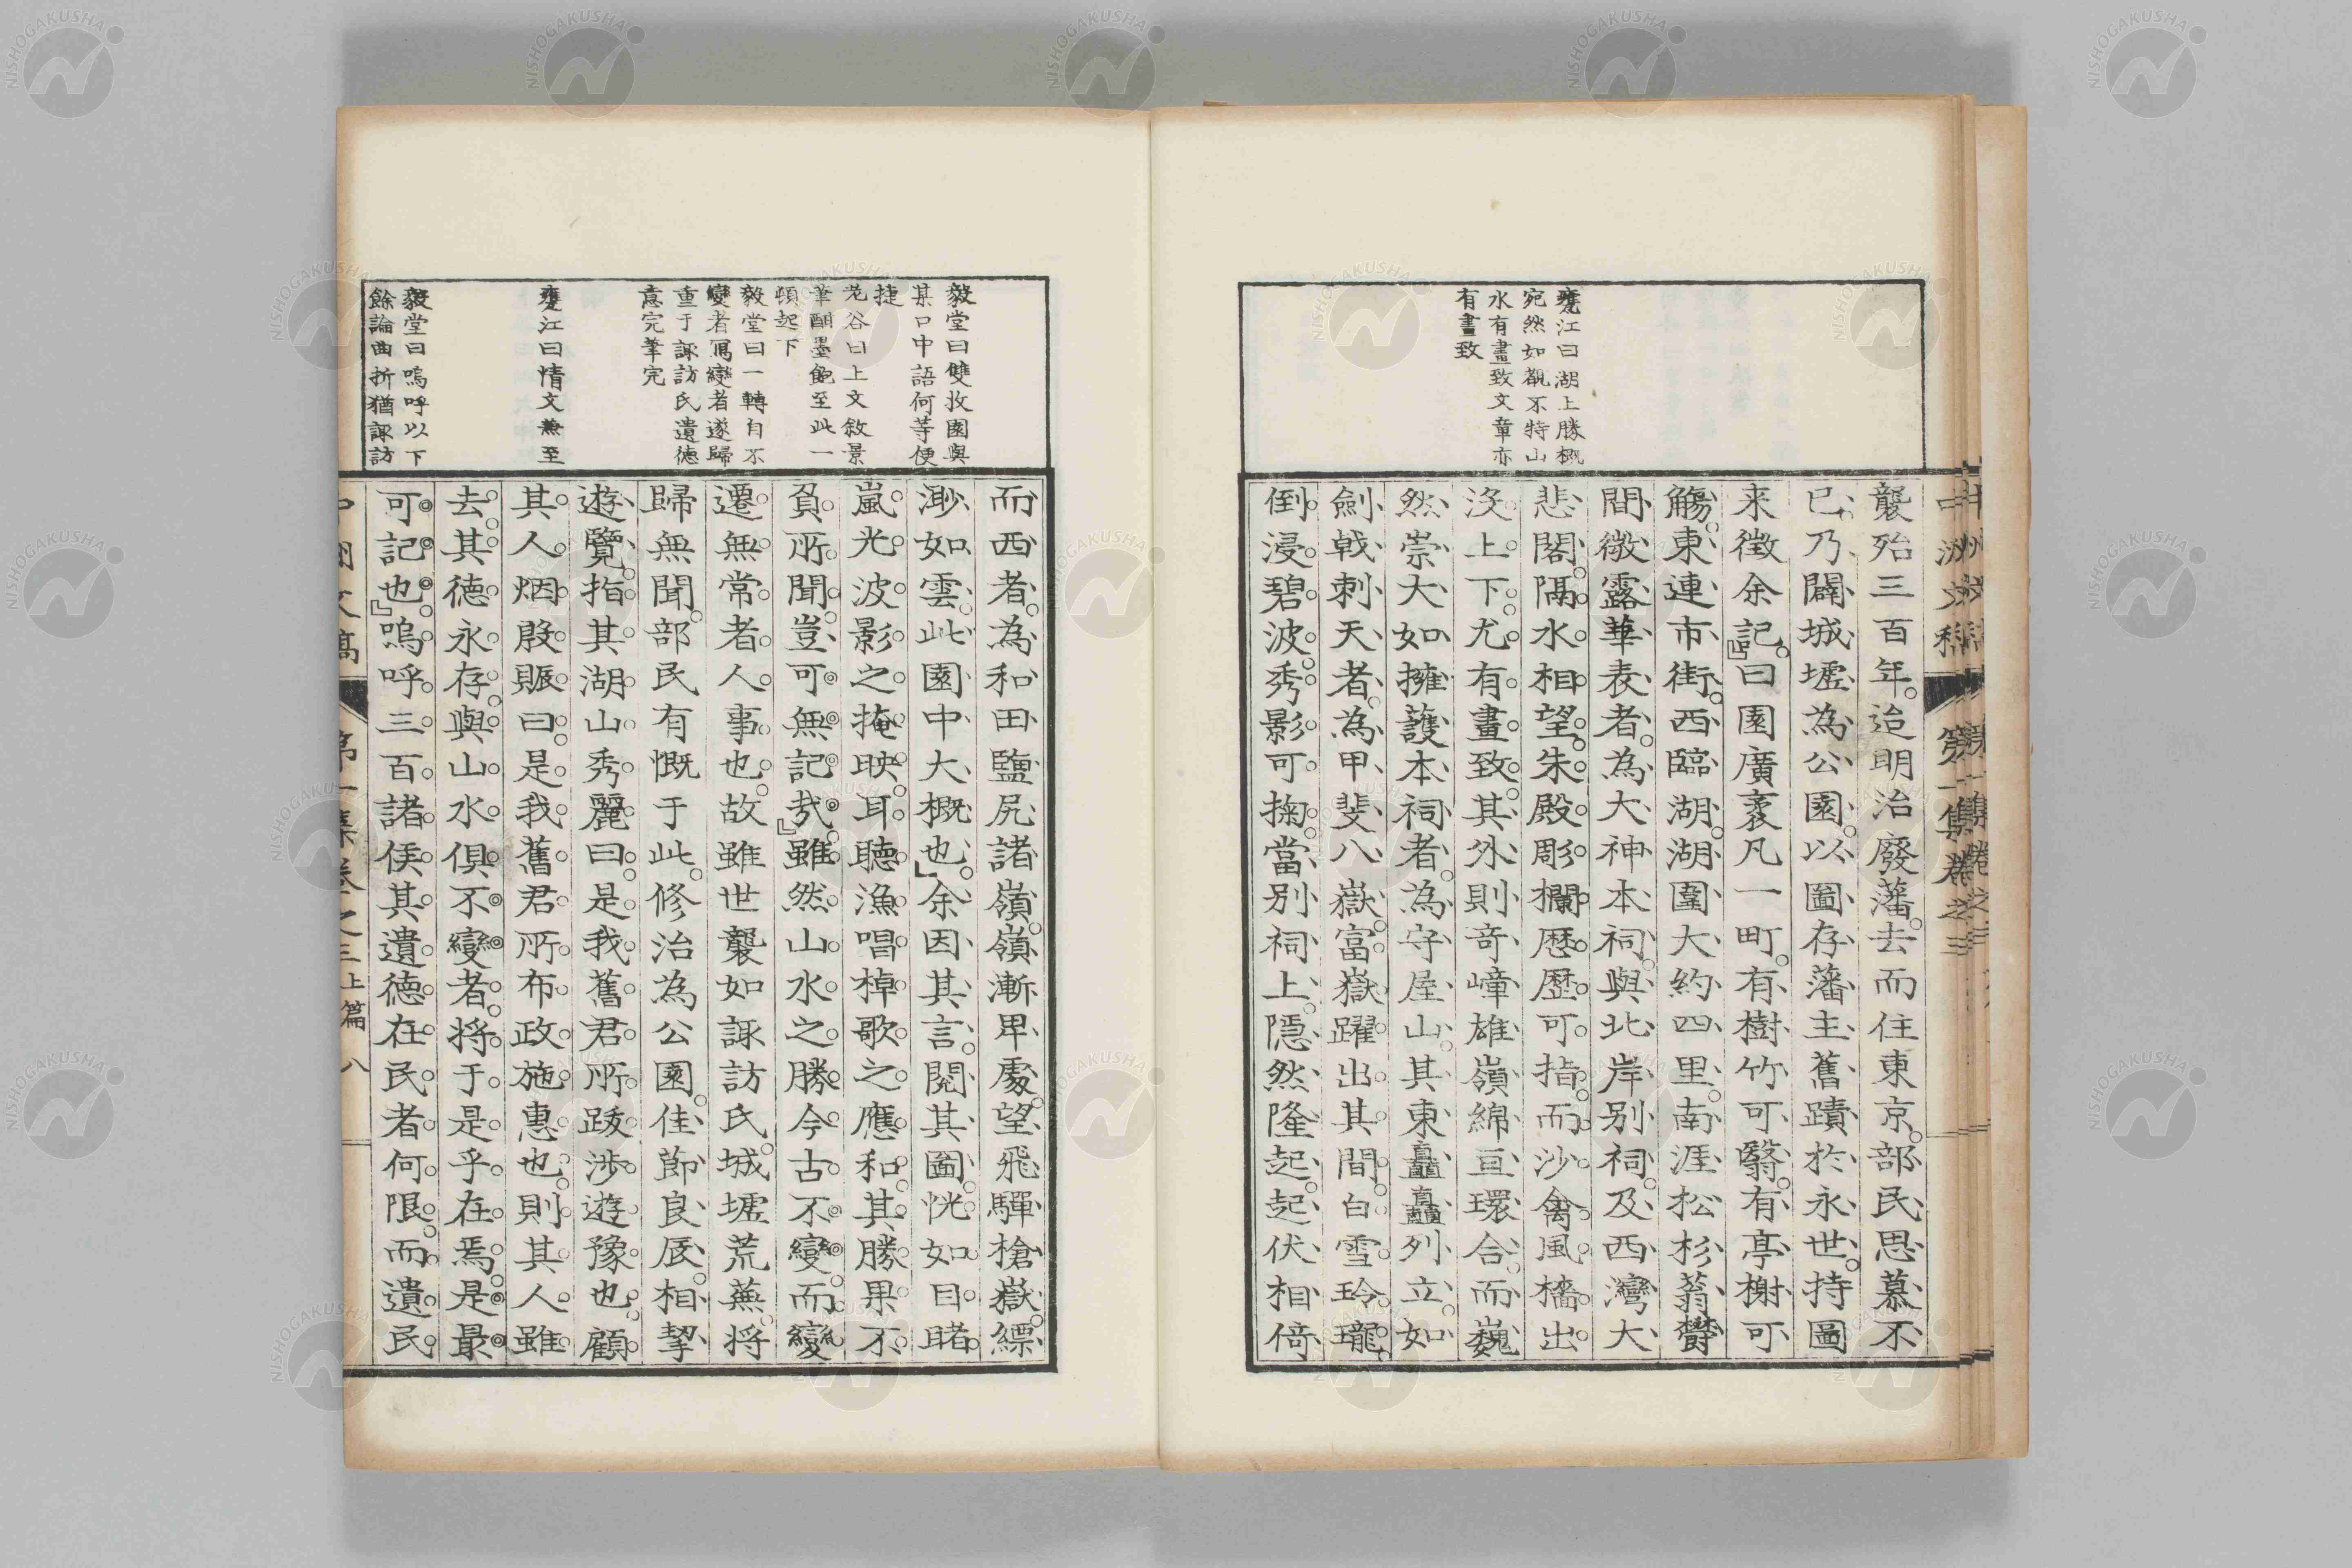 甕江曰湖上勝概
宛然如覩不特山
水有畫致文章亦
有畫致
襲殆三百年。迨明治廢藩。去而住東京。部民思慕不
已。乃闢城墟為公園。以圖存藩主舊蹟於永世。持圖
来徵余記。』曰園廣袤凡一町。有樹竹可翳。有亭榭可
觴。東連市街。西臨湖。湖圍大約四里。南涯松杉蓊欝
間微露華表者。為大神本祠。與北岸别祠。及西灣大
悲閣。隔水相望。朱殿彫欄。歷歷可指。而沙禽風檣。出
没上下。尤有畫致。其外則奇嶂雄嶺。綿亘環合。而巍
然崇大如擁護本祠者。為守屋山。其東矗矗列立。如
劍戟刺天者。為甲斐八嶽。富嶽躍出其間。白雪玲瓏。
倒浸碧波。秀影可掬。當别祠上。隱然隆起。起伏相倚
毅堂曰雙收園與
某口中語何等便
捷
花谷曰上文敘景
筆酣墨飽至此一
頓起下
毅堂曰一轉自不
變者寫變者遂歸
重于諏訪氏遺德
意完筆完
甕江曰情文兼至
毅堂曰嗚呼以下
餘論曲折猶諏訪
而西者。為和田鹽尻諸嶺。嶺漸卑處。望飛驒槍嶽。縹
渺如雲。此園中大概也。』余因其言。閱其圖。恍如目睹。
嵐光波影之掩映。耳聽漁唱棹歌之應和。其勝果不
負所聞。豈可無記哉。』雖然山水之勝。今古不變。而變
遷無常者。人事也。故雖世襲如諏訪氏。城墟荒蕪。将
歸無聞。部民有慨于此。修治為公園。佳節良辰。相挈
遊覽。指其湖山秀麗曰。是我舊君所跋涉遊豫也。顧
其人烟殷賑曰。是我舊君所布政施惠也。則其人雖
去。其德永存。與山水俱不變者。将于是乎在焉。是最
可記也。』嗚呼三百諸侯。其遺德在民者何限。而遺民
中洲文稿 第一集卷之三上篇 八